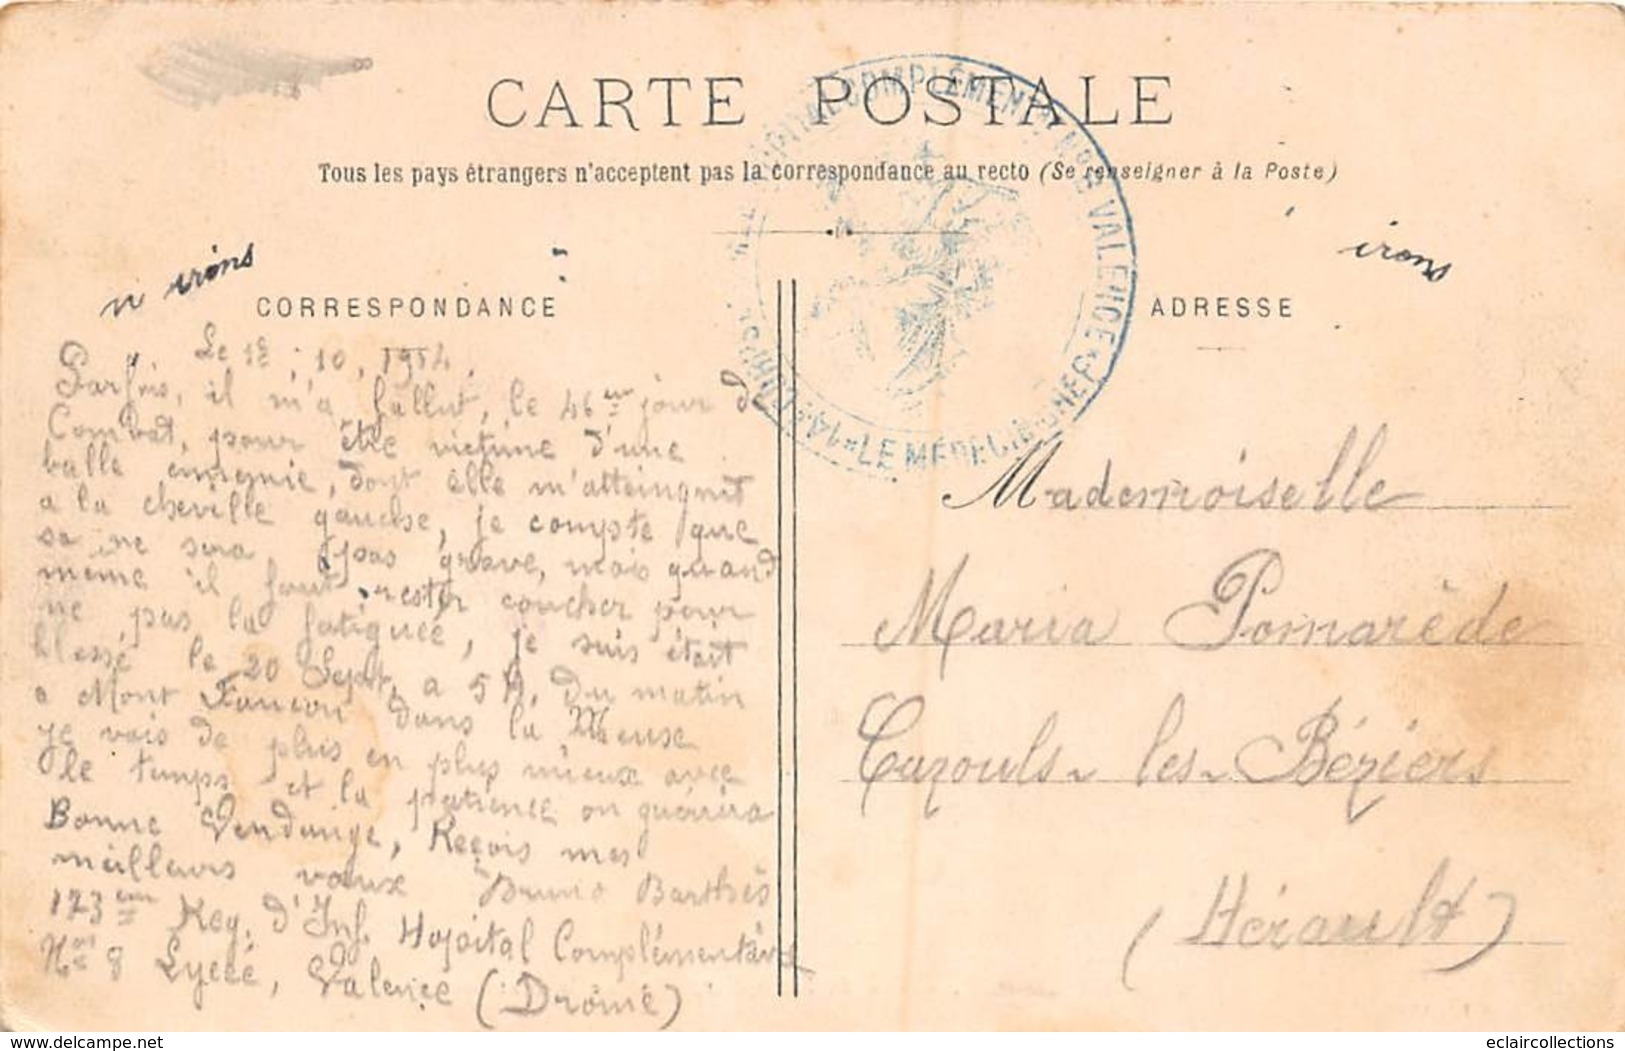 CARTE POSTALE
Tous les pays étrangers n'acceptent pas la correspondance au recto (Se renseigner à la Poste)
irons
irons
CORRESPONDANCE
ADRESSE
HOPITAL COMPLÉMENTRE N° 8 VALENCE
LE MÉDECIN CHEF
Le 1er, 10, 1914.
Parfois, il m'a fallut, le 46em jour de
Combat, pour être victime d'une
balle ennemie, dont elle m'atteingnit
a la cheville gauche, je compte que
sa ne sera pas grave, mais quand
même il faut rester coucher pour
ne pas la fatiguée, je suis était
blessé le 20 Sept, a 5 H, du matin
a Mont Faucon dans la Meuse
je vais de plus en plus mieux avec
le temps et la patience on guérira
Bonne Vendange, Reçois mes
meilleurs vœux Bruno Barthés
173em Reg. d'Inf. Hopital Complémentaire
Nos 8 Lycée, Valence (Drôme)
Mademoiselle
Maria Pomarède
Cazouls-les-Béziers
(Hérault)
delcampe.net
eclaircollections